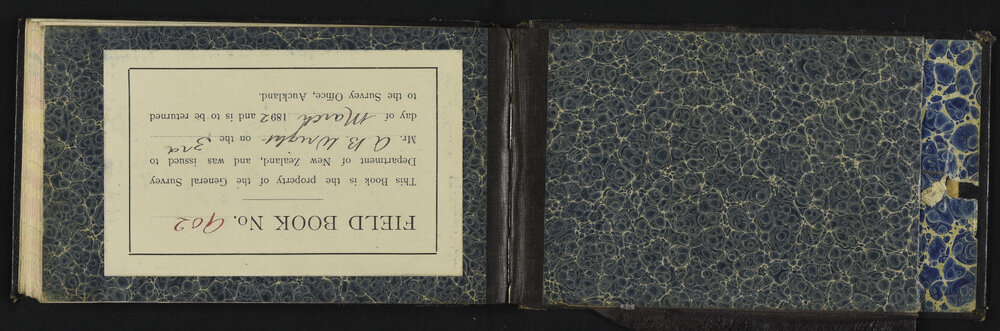 FIELD BOOK No. 902
This Book is the property of the General Survey
Department of New Zealand, and was issued to
Mr. A. B. Wright on the 3rd
day of March 1892 and is to be returned
to the Survey Office, Auckland.